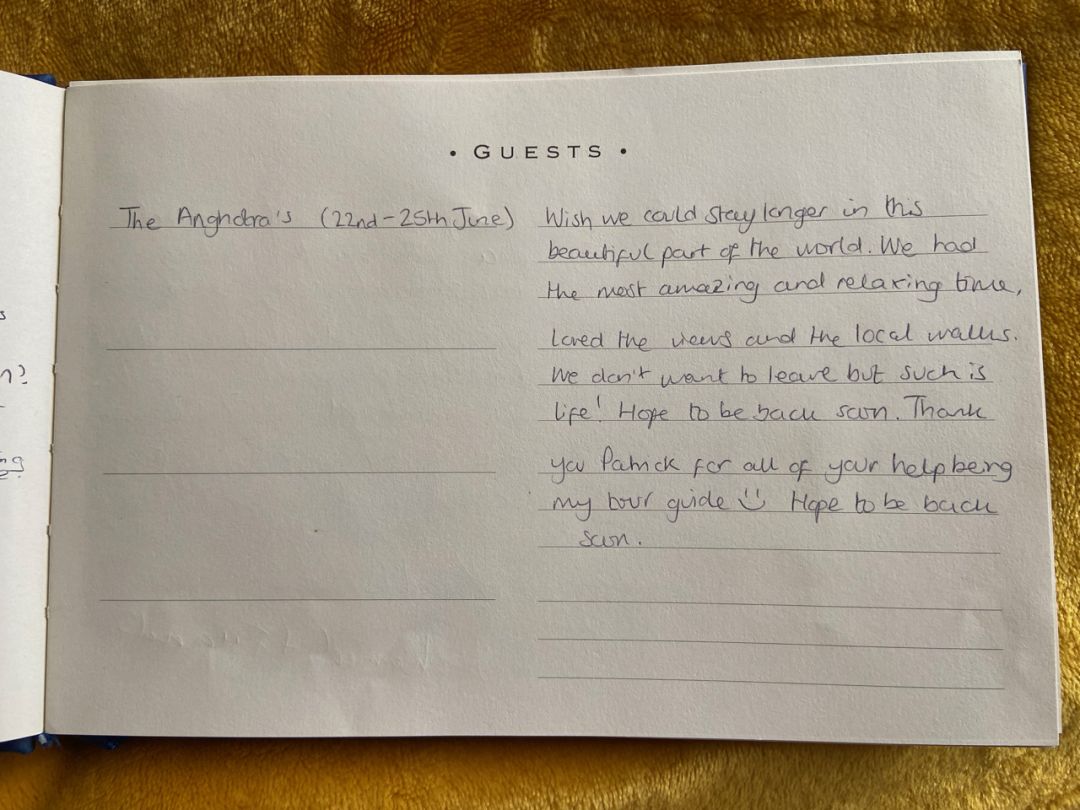 • GUESTS •
The Anghdra's (22nd-25th June)
Wish we could stay longer in this
beautiful part of the world. We had
the most amazing and relaxing time,
loved the views and the local walks.
We don't want to leave but such is
life! Hope to be back soon. Thank
you Patrick for all of your help being
my tour guide Hope to be back
soon.
n?